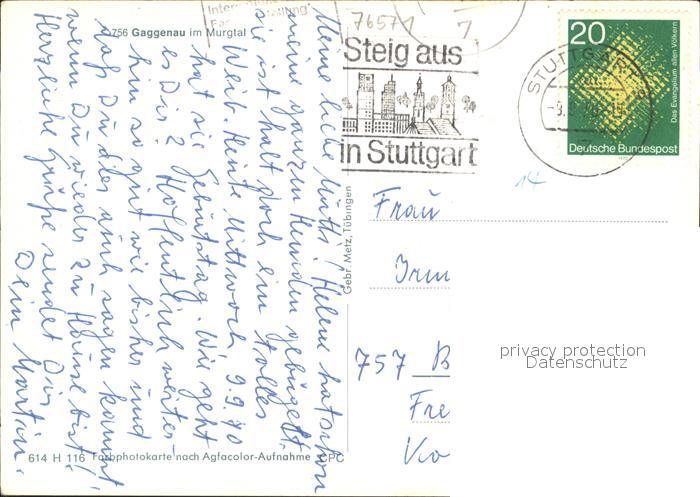 756 Gaggenau im Murgtal
Meine liebe Mutti! Helene hat schon
meine ganzen Hemden gebügelt,
sie ist halt doch ein tolles
Weib. Heute Mittwoch, 9.9.70
hat sie Geburtstag. Wie geht
es Dir? Hoffentlich weiter-
hin so gut wie bisher und
daß Du dies auch sagen kannst
wenn Du wieder zu Hause bist!
Herzliche Grüße sendet Dir
Dein Martin.
614 H 116 Farbphotokarte nach Agfacolor-Aufnahme CPC
Gebr. Metz, Tübingen
76571
7
Steig aus
in Stuttgart
STUTTGART
20
Das Evangelium allen Völkern
Deutsche Bundespost
14
Frau
Irm
757 B
Fre
privacy protection
Datenschutz